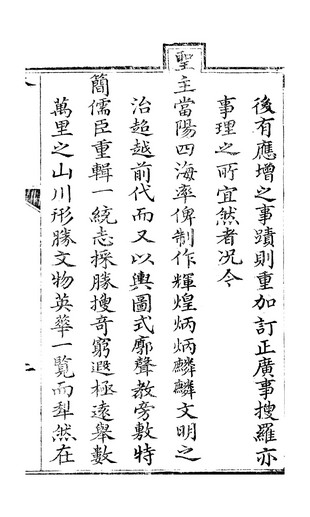 後有應增之事蹟則重加訂正廣事搜羅亦
事理之所宜然者况今
聖主當陽四海率俾制作輝煌炳炳麟麟文明之
治超越前代而又以輿圖式廓聲教旁敷特
簡儒臣重輯一統志採勝搜奇窮遐極遠舉數
萬里之山川形勝文物英華一覽而犁然在